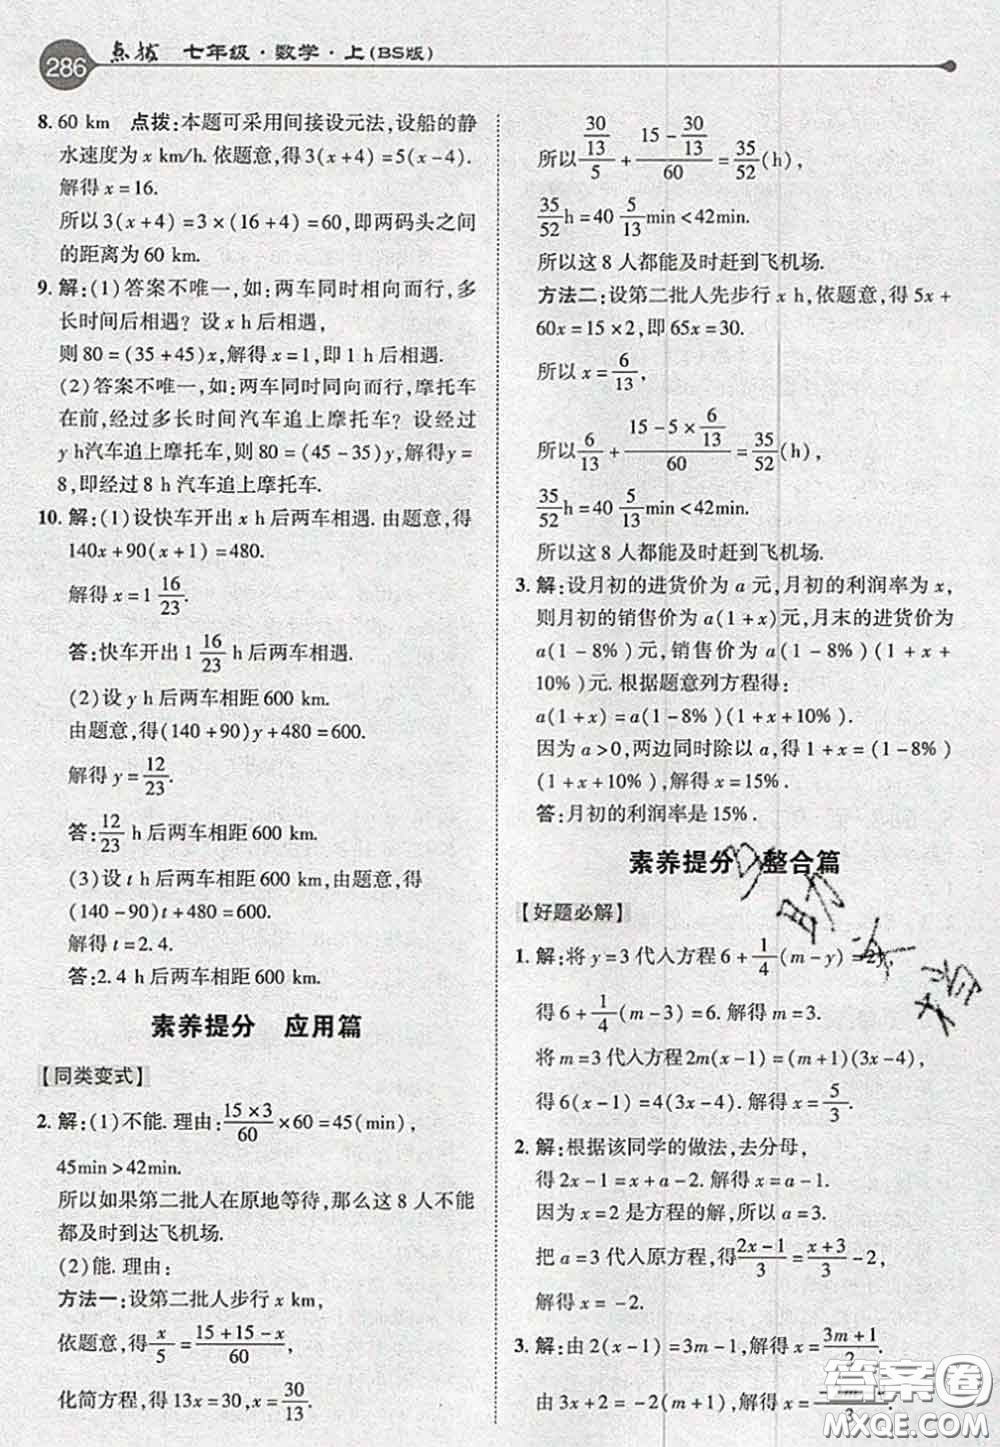 286 点拨 七年级·数学·上(BS版)
8. 60 km 点拨:本题可采用间接设元法,设船的静
水速度为 x km/h. 依题意,得 3(x+4)=5(x-4).
解得 x=16.
所以 3(x+4)=3×(16+4)=60,即两码头之间
的距离为 60 km.
9. 解:(1)答案不唯一,如:两车同时相向而行,多
长时间后相遇? 设 x h后相遇,
则 80=(35+45)x,解得 x=1,即 1 h 相遇.
(2)答案不唯一,如:两车同时同向而行,摩托车
在前,经过多长时间汽车追上摩托车? 设经过
y h汽车追上摩托车,则 80=(45-35)y,解得y=
8,即经过 8 h 汽车追上摩托车.
10. 解:(1)设快车开出 x h后两车相遇. 由题意,得
140x+90(x+1)=480.
解得 x=1 16/23.
答:快车开出 1 16/23 h 后两车相遇.
(2)设 y h 后两车相距 600 km.
由题意,得(140+90)y+480=600.
解得 y=12/23.
答:12/23 h 后两车相距 600 km.
(3)设 t h 后两车相距 600 km,由题意,得
(140-90)t+480=600.
解得 t=2.4.
答:2.4 h 后两车相距 600 km.
素养提分 应用篇
【同类变式】
2. 解:(1)不能. 理由:15×3/60×60=45(min),
45min>42min.
所以如果第二批人在原地等待,那么这 8 人不能
都及时到达飞机场.
(2)能. 理由:
方法一:设第二批人步行 x km,
依题意,得x/5=15+15-x/60,
化简方程,得 13x=30,x=30/13.
所以 30/13/5+15-30/13/60=35/52(h),
35/52h=40 5/13min<42min.
所以这 8 人都能及时赶到飞机场.
方法二:设第二批人先步行 x h,依题意,得 5x+
60x=15×2,即 65x=30.
所以 x=6/13,
所以6/13+15-5×6/13/60=35/52(h),
35/52h=40 5/13min<42min.
所以这 8 人都能及时赶到飞机场.
3. 解:设月初的进货价为 a 元,月初的利润率为 x,
则月初的销售价为 a(1+x)元,月末的进货价为
a(1-8%)元,销售价为 a(1-8%)(1+x+
10%)元. 根据题意列方程得:
a(1+x)=a(1-8%)(1+x+10%).
因为 a>0,两边同时除以 a,得 1+x=(1-8%)
(1+x+10%),解得 x=15%.
答:月初的利润率是 15%.
素养提分 整合篇
【好题必解】
1. 解:将 y=3 代入方程 6+1/4(m-y)=2y,
得 6+1/4(m-3)=6. 解得 m=3.
将 m=3 代入方程 2m(x-1)=(m+1)(3x-4),
得 6(x-1)=4(3x-4). 解得 x=5/3.
2. 解:根据该同学的做法,去分母,
得 2x-1=x+a-2. 解得 x=a-1.
因为 x=2 是方程的解,所以 a=3.
把 a=3 代入原方程,得2x-1/3=x+3/3-2,
解得 x=-2.
3. 解:由 2(x-1)=3m-1,解得 x=3m+1/2.
由 3x+2=-2(m+1),解得 x=
答案圈
MXQE.COM